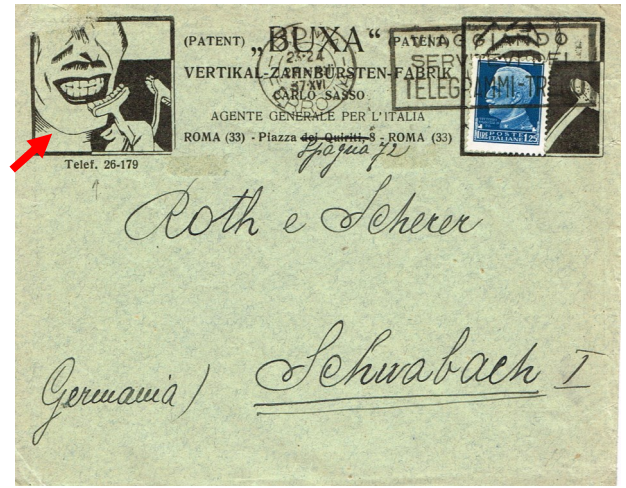 (PATENT) „BUXA“ (PATENT)
VERTIKAL-ZAHNBÜRSTEN-FABRIK
CARLO SASSO
AGENTE GENERALE PER L'ITALIA
ROMA (33) - Piazza dei Quiriti, 8 - ROMA (33)
Spagna 72
Telef. 26-179
23-24
37 XVI
VIAGGIANDO
SERVITEVI DEI
TELEGRAMMI-TRENO
POSTE
LIRE ITALIANE 1,25
Roth e Scherer
Schwabach I
Germania)